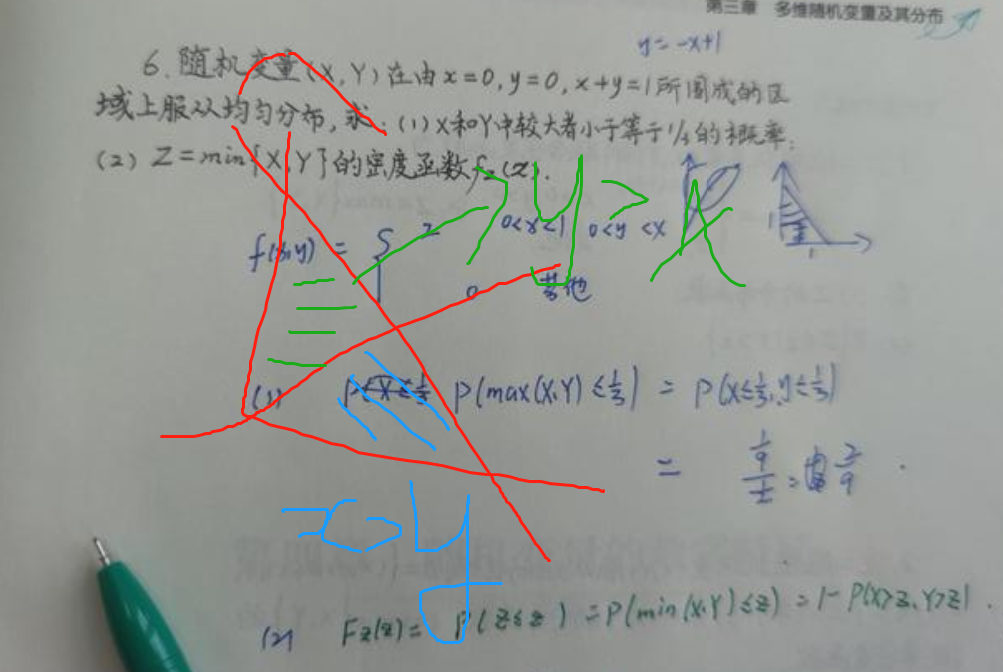 第三章 多维随机变量及其分布
y=-x+1
6.随机变量(X,Y)在由x=0,y=0,x+y=1所围成的区
域上服从均匀分布,求:(1)X和Y中较大者小于等于1/3的概率;
(2) Z=min{X,Y}的密度函数f_Z(z).
y>x
f(x,y) = { 2 0<x<1 0<y<x
0 其他
1
1
(1) P(max(X,Y)≤1/3) = P(X≤1/3,y≤1/3)
= (1/9)/(1/2) = 2/9 .
x>y
(2) Fz(z)= P(Z≤z) = P(min(X,Y)≤z) = 1-P(X>z,Y>z) .